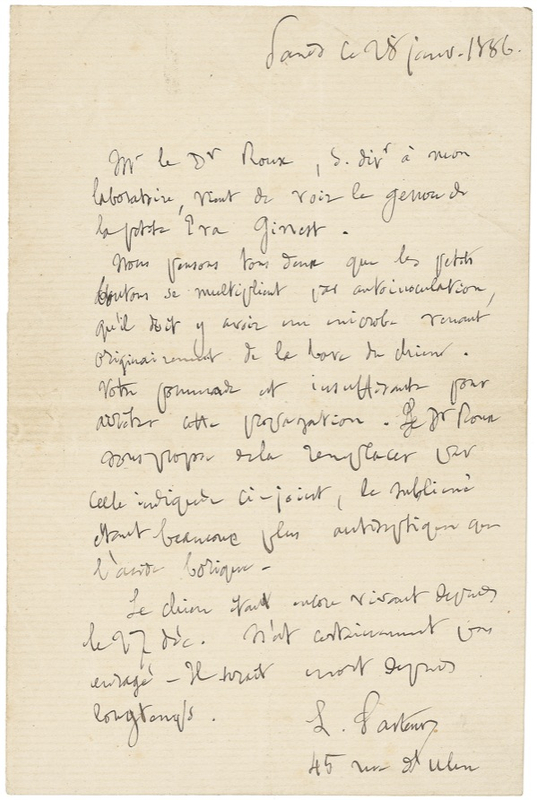 ce 28 janv. 1886.
Mr le Dr Roux, s. dirr à mon
laboratoire, vient de voir le genou de
la petite Eva Ginest.
Nous pensons tous deux que les petits
boutons se multiplient par autoinoculation,
qu'il doit y avoir un microbe venant
originairement de la bave du chien.
Votre pommade est insuffisante pour
arrêter cette propagation. Le Dr Roux
vous propose de la remplacer par
celle indiquée ci-joint, le sublimé
étant beaucoup plus antiseptique que
l'acide borique -
Le chien étant encore vivant depuis
le 27 déc. n'est certainement pas
enragé - Il serait mort depuis
longtemps.
L. Pasteur
45 rue d'Ulm